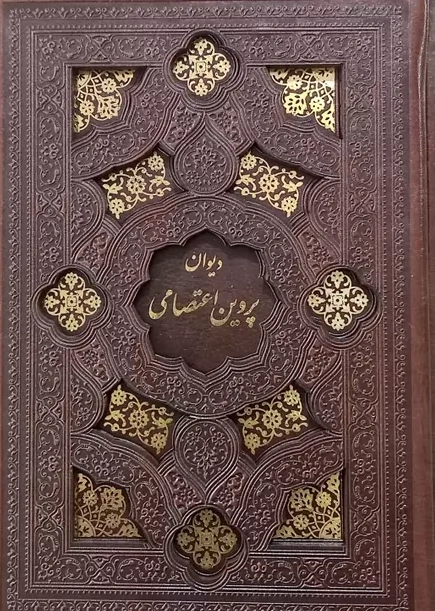 دیوان
پروین اعتصامی